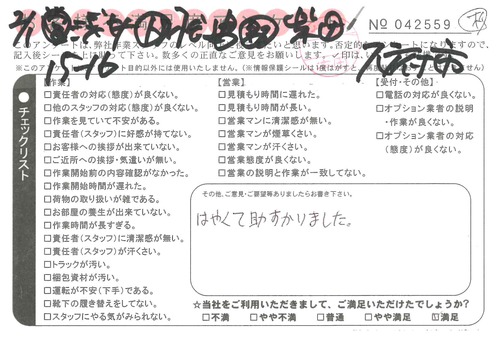 No 042559
このアンケートは、弊社作業スタッフのレベル向上に
記入後シー
※このア
ート目的以外には使用いたしません。（※情報保護シールは1度はがすと
15-16
チェックリスト
【作業】
□責任者の対応(態度)が良くない。
□他のスタッフの対応(態度)が良くない。
□作業を見ていて不安がある。
□責任者(スタッフ)に好感が持てない。
□お客様への挨拶が出来ていない。
□ご近所への挨拶・気遣いが無い。
□作業開始前の内容確認がなかった。
□作業開始時間が遅れた。
□荷物の取り扱いが雑である。
□お部屋の養生が出来ていない。
□作業時間が長すぎる。
□責任者(スタッフ)に清潔感が無い。
□責任者(スタッフ)が汗くさい。
□トラックが汚い。
□梱包資材が汚い。
□運転が不安(下手)である。
□靴下の履き替えをしてない。
□スタッフにやる気がみられない。
【営業】
□見積もり時間に遅れた。
□見積もり時間が長い。
□営業マンに清潔感が無い。
□営業マンが煙草くさい。
□営業マンが汗くさい。
□営業態度が良くない。
□営業の説明と作業が一致してない。
【受付・その他】
□電話の対応が良くない。
□オプション業者の説明
・作業が良くない。
□オプション業者の対応
(態度)が良くない。
その他、ご意見・ご要望等ありましたらお書き下さい。
はやくて助すかりました。
☆当社をご利用いただきまして、ご満足いただけたでしょうか?
□不満 □やや不満 □普通 □やや満足 ☑満足